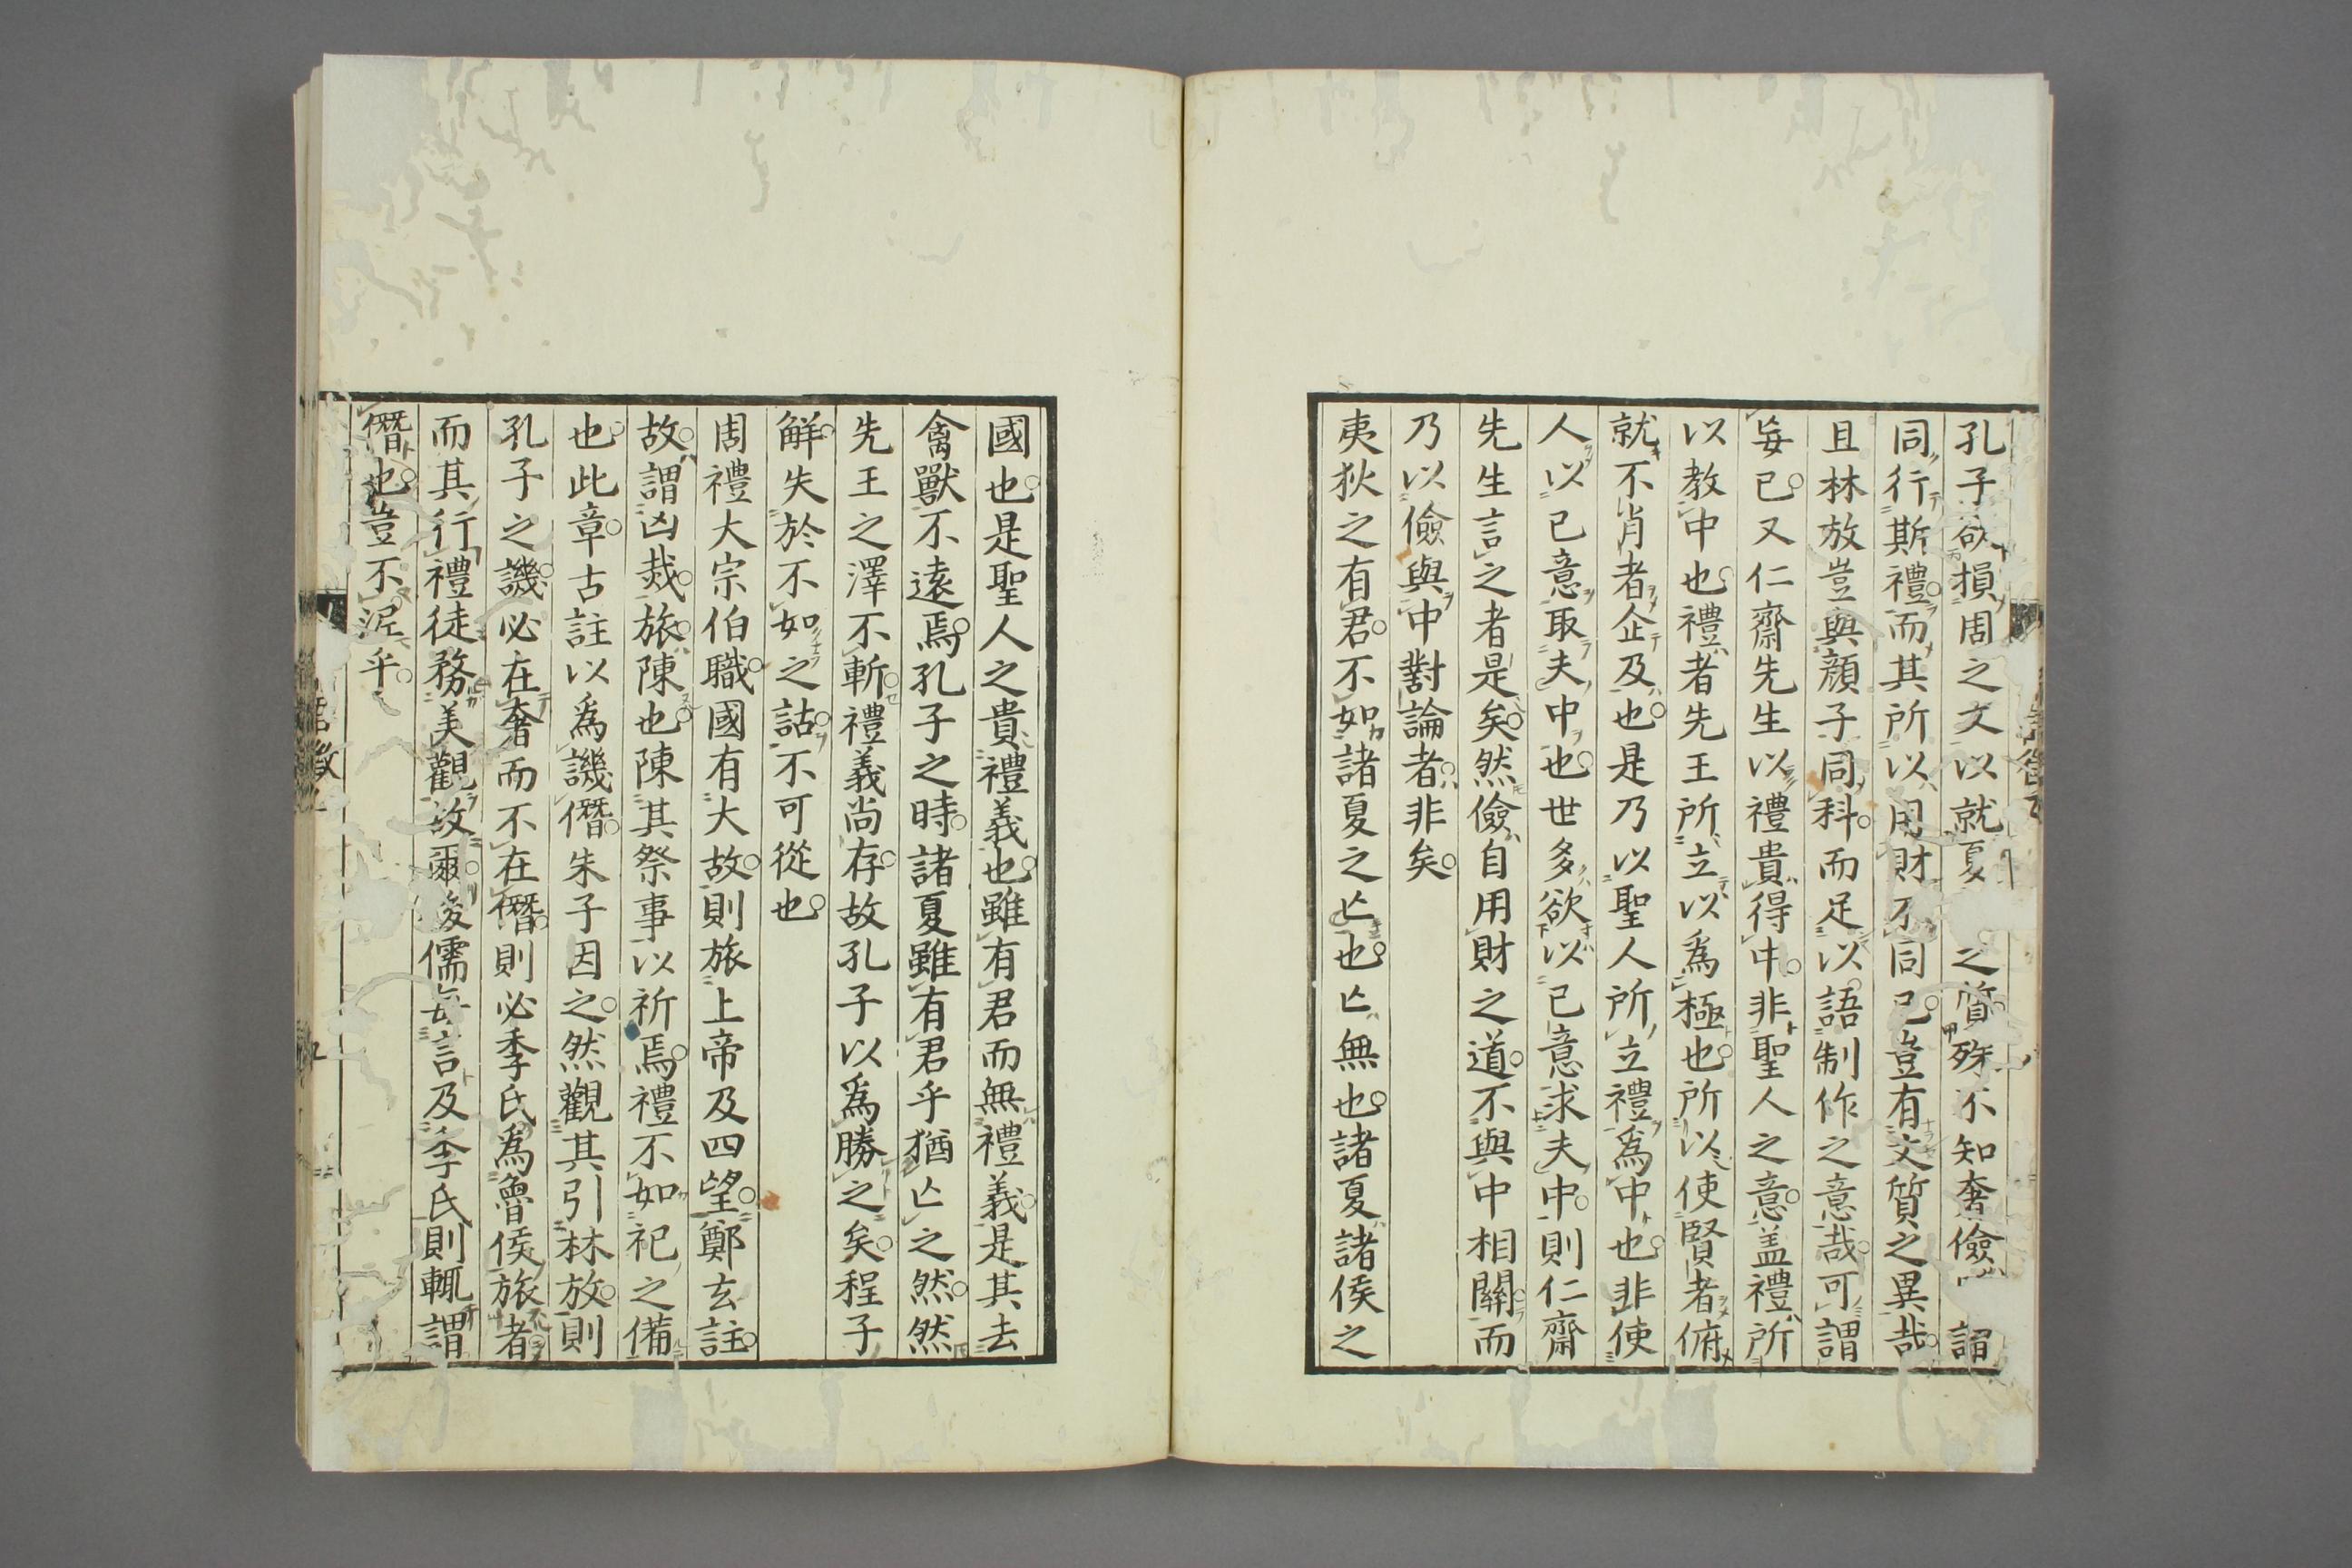 孔子欲損周之文以就夏之質殊不知奢儉
同行斯禮而其所以用財不同已豈有文質之異哉
且林放豈與顏子同科而足以語制作之意哉可謂
妄已又仁齋先生以禮貴得中非聖人之意盖禮所
以教中也禮者先王所立以爲極也所以使賢者俯
就不肖者企及也是乃以聖人所立禮爲中也非使
人以己意取夫中也世多欲以己意求夫中則仁齋
先生言之者是矣然儉自用財之道不與中相關而
乃以儉與中對論者非矣
夷狄之有君不如諸夏之亾也亾無也諸夏諸侯之
國也是聖人之貴禮義也雖有君而無禮義是其去
禽獸不遠焉孔子之時諸夏雖有君乎猶亾之然然
先王之澤不斬禮義尚存故孔子以爲勝之矣程子
觧失於不如之詁不可從也
周禮大宗伯職國有大故則旅上帝及四望鄭玄註
故謂凶烖旅陳也陳其祭事以祈焉禮不如祀之備
也此章古註以爲譏僭朱子因之然觀其引林放則
孔子之譏必在奢而不在僭則必季氏爲魯侯旅者
而其行禮徒務美觀故爾後儒每言及季氏則輒謂
僭也豈不泥乎